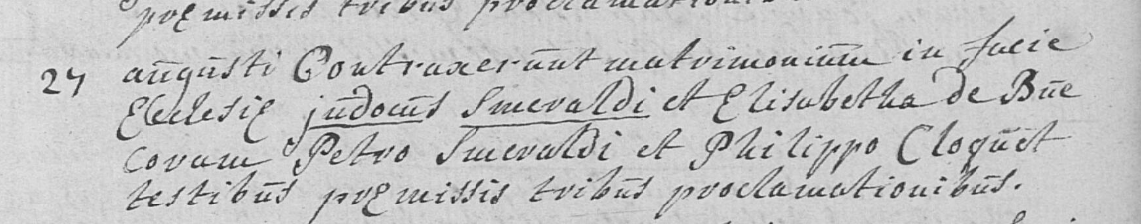 præmissis tribus proclamationibus
27 augusti Contraxerunt matrimonium in facie
Ecclesiæ judocus Smevaldi et Elisabetha de Bue
coram Petro Smevaldi et Philippo Cloquet
testibus præmissis tribus proclamationibus.